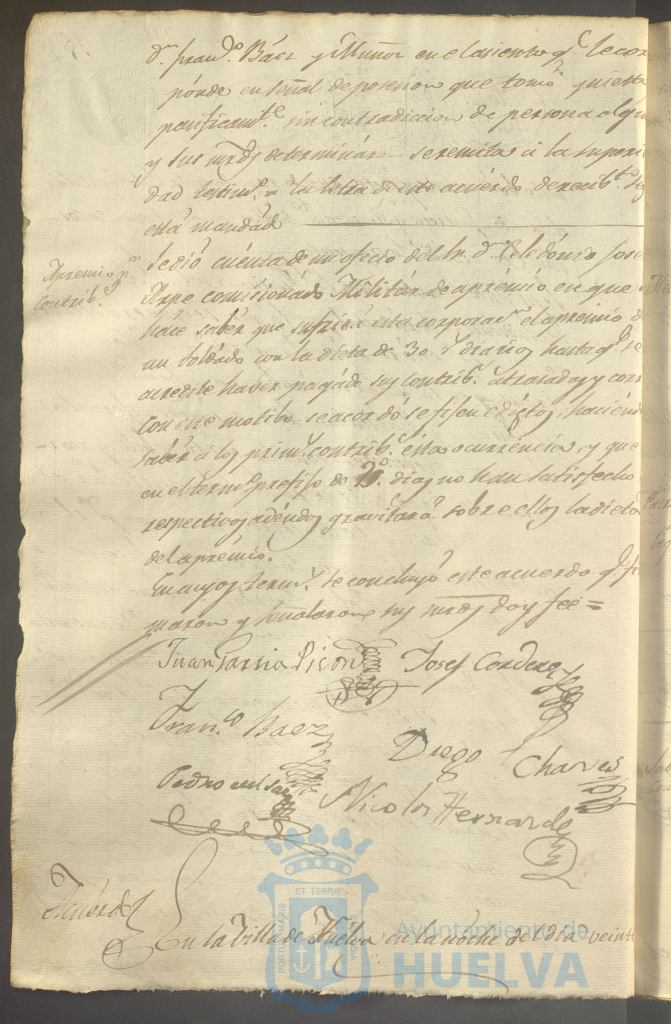 Dn. Franco. Báez y Muñoz en el asiento qe. le corres
pónde en señal de posesion que tomó quieta
pacificamte. sin contradiccion de persona algu
y sus mrds determináron se remita á la superi
dad testimo. a la letra de este acuérdo
está mandád
Apremio pr.
Contribs.
Se dió cuénta de un oficio del Sr. Dn. Celedónio José
Arpe comisionádo Militár de aprémio en que
háce sabér que sufrirá esta corporacn. el aprémio de
un soldádo con la diéta de 30 rs. diarios hasta qe. se
acredite haver pagádo sus contribs. atrasadas y corr
Con este motibo se acordó se fijen edictos, haciéndo
sabér á los primrs. contribs. esta ocurréncia, y que
en el termo. prefijo de dias no han satisfecho
respectivos adéudos gravitará sobre ellos la diéta
del aprémio.
En cuyos termos. se concluyó este acuerdo qe. fir
maron y señalaron sus mrds doy fée =
Juan Garcia Picon Josef Cordero
Franco. Baez
Diego Charves
Pedro
Nicolas Hernandez
Acuérdo
En la Villa de Huélva en la nóche del dia veinte
ET TERRÆ
PORTUS MARIS
CUSTODIA
Ayuntamiento de
HUELVA